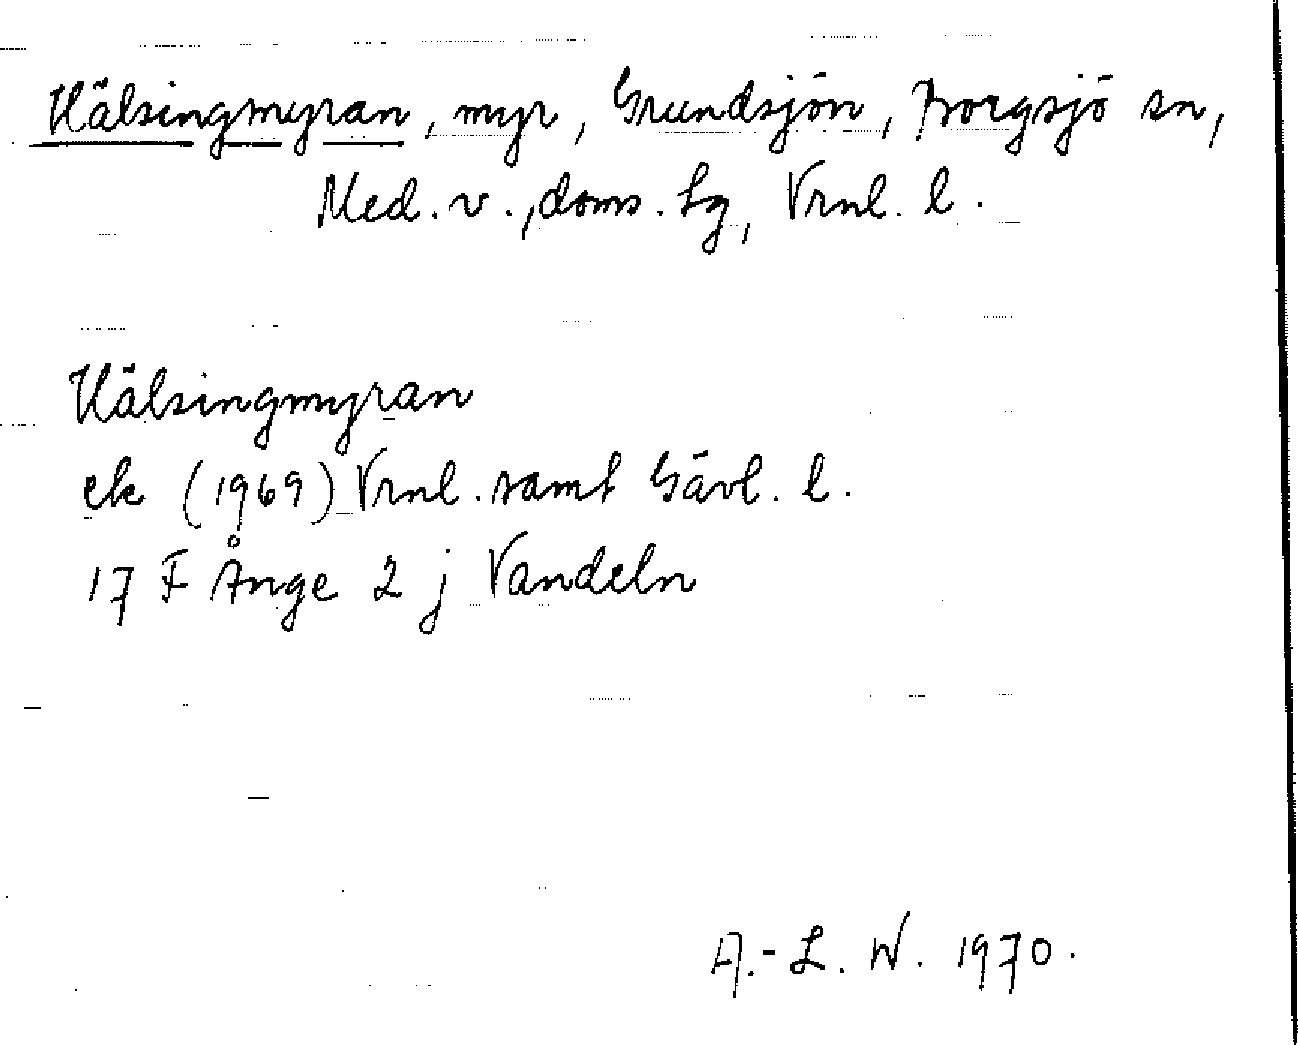 Hälsingmyran, myr, Grundsjön, Borgsjö sn,
Med. v., doms. lg, Vrnl. l.
Hälsingmyran
ek (1969) Vrnl. samt Gävl. l.
17 F Ånge 2 j Vandeln
A.-L. W. 1970.